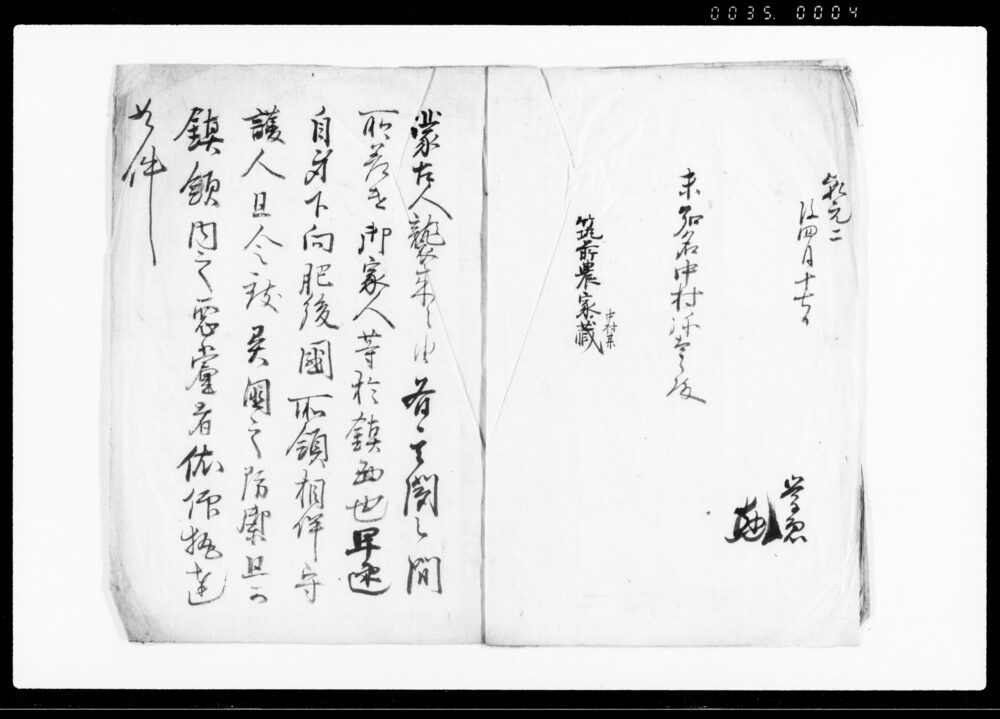 0035. 0004
乾元二
後四月十七日
未知名中村弥二郎殿
筑前農家蔵
中村某
蒙古人襲来之由有其聞之間
所差遣御家人等於鎮西也早速
自身下向肥後國所領相伴守
護人且令致異國之防禦且可
鎮領内之悪黨者依仰執達
如件